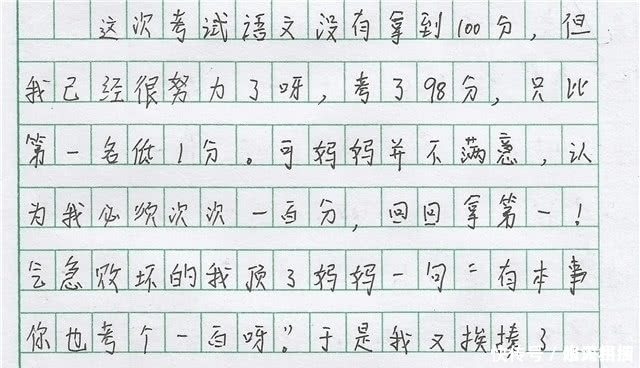 这次考试语文没有拿到100分，但
我已经很努力了呀，考了98分，只比
第一名低1分。可妈妈并不满意，认
为我必须次次一百分，回回拿第一！
气急败坏的我顶了妈妈一句“有本事
你也考个一百呀！”于是我又挨揍了
快传号/